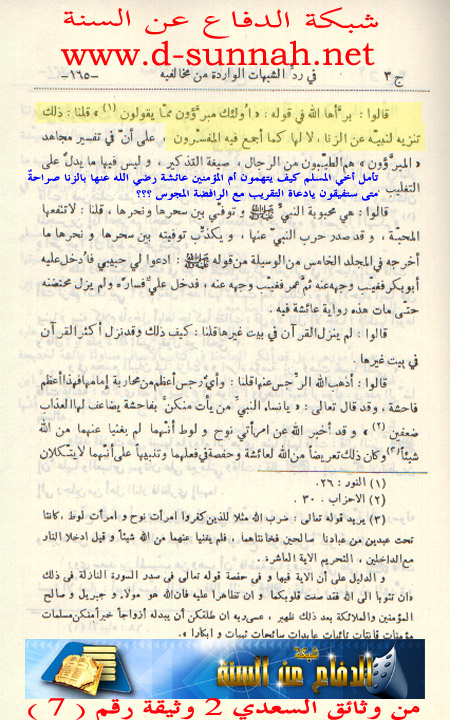 شبكة الدفاع عن السنة
www.d-sunnah.net
ج ٣ في رد الشبهات الواردة من مخالفيه -١٦٥-
قالوا : برّأها الله في قوله : « اولئك مبرّؤون ممّا يقولون (١) » قلنا : ذلك
تنزيه لنبيّه عن الزنا ، لا لها كما أجمع فيه المفسّرون ، على أنّ في تفسير مجاهد
« المبرّؤون » هم الطيّبون من الرجال ، صيغة التذكير ، و ليس فيها ما يدلّ على
التغليب
تأمل أخي المسلم كيف يتهمون أم المؤمنين عائشة رضي الله عنها بالزنا صراحة
متى ستفيقون يادعاة التقريب مع الرافضة المجوس ؟؟؟
قالوا : هي محبوبة النبيّ ﷺ و توفّي بين سحرها و نحرها ، قلنا : لا تنفعها
المحبّة ، و قد صدر حرب النبيّ عنها ، و يكذّب توفيته بين سحرها و نحرها ما
أخرجه في المجلد الخامس من الوسيلة من قوله ﷺ : ادعوا لي حبيبي فاُدخل عليه
أبوبكر فغيّب وجهه عنه ثمّ عمر فغيّب وجهه عنه ، فدخل عليّ فسارّه ولم يزل محتضنه
حتّى مات هذه رواية عائشة فيه .
قالوا : لم ينزل القرآن في بيت غيرها قلنا : كيف ذلك وقد نزل أكثر القرآن
في بيت غيرها .
قالوا : أذهب الله الرّجس عنها قلنا : وأيّ رجس أعظم من محاربة إمامها فهذا أعظم
فاحشة ، و قد قال تعالى : « يا نساء النبيّ من يأت منكنّ بفاحشة يضاعف لها العذاب
ضعفين (٢) » و قد أخبر الله عن امرأتي نوح و لوط أنّهما لم يغنيا عنهما من الله
شيئاً (٣) و كان ذلك تعريضاً من الله لعائشة و حفصة في فعلهما و تنبيهاً على أنّهما لا يتّكلان
(١) النور : ٢٦ .
(٢) الاحزاب : ٣٠ .
(٣) يريد قوله تعالى : ضرب الله مثلا للذين كفروا امرأت نوح و امرأت لوط ، كانتا
تحت عبدين من عبادنا صالحين فخانتاهما ، فلم يغنيا عنهما من الله شيئاً و قيل ادخلا النار
مع الداخلين ، التحريم الاية العاشرة .
و الدليل على أن الاية فيها و في حفصة قوله تعالى في صدر السورة النازلة في ذلك
« ان تتوبا الى الله فقد صغت قلوبكما و ان تظاهرا عليه فان الله هو مولاه و جبريل و صالح
المؤمنين والملائكة بعد ذلك ظهير ، عسى ربه ان طلقكن أن يبدله أزواجاً خيراً منكن مسلمات
مؤمنات قانتات تائبات عابدات سائحات ثيبات و ابكارا » .
شبكة
الدفاع عن السنة
من وثائق السعدي 2 وثيقة رقم ( 7 )